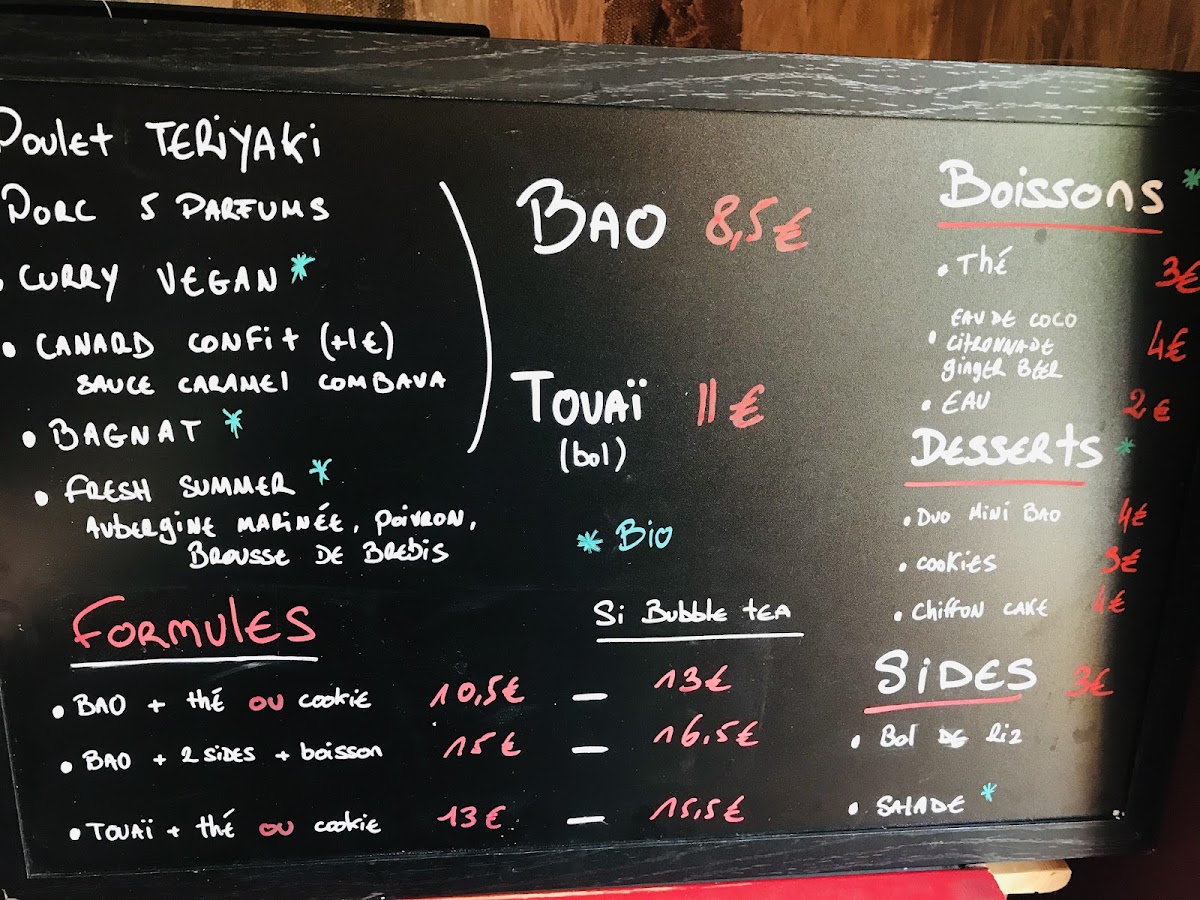 Poulet TERIYAKI
PORC 5 PARFUMS
• CURRY VEGAN *
• CANARD CONFIT (+1€)
SAUCE CARAMEL COMBAVA
• BAGNAT *
• FRESH SUMMER *
AUBERGINE MARINÉE, POIVRON,
BROUSSE DE BREBIS
BAO 8,5€
TOUAÏ 11€
(bol)
* Bio
Boissons *
• Thé 3€
EAU DE COCO
• CITRONNADE 4€
ginger BEER
• EAU 2€
DESSERTS *
• DUO MINI BAO 4€
• COOKIES 3€
• Chiffon CAKE 4€
SIDES 3€
• Bol de Riz
• SALADE *
FORMULES
Si Bubble tEA
• BAO + thé ou cookie 10,5€ – 13€
• BAO + 2 SIDES + boisson 15€ – 16,5€
• TOUAÏ + thé ou cookie 13€ – 15,5€